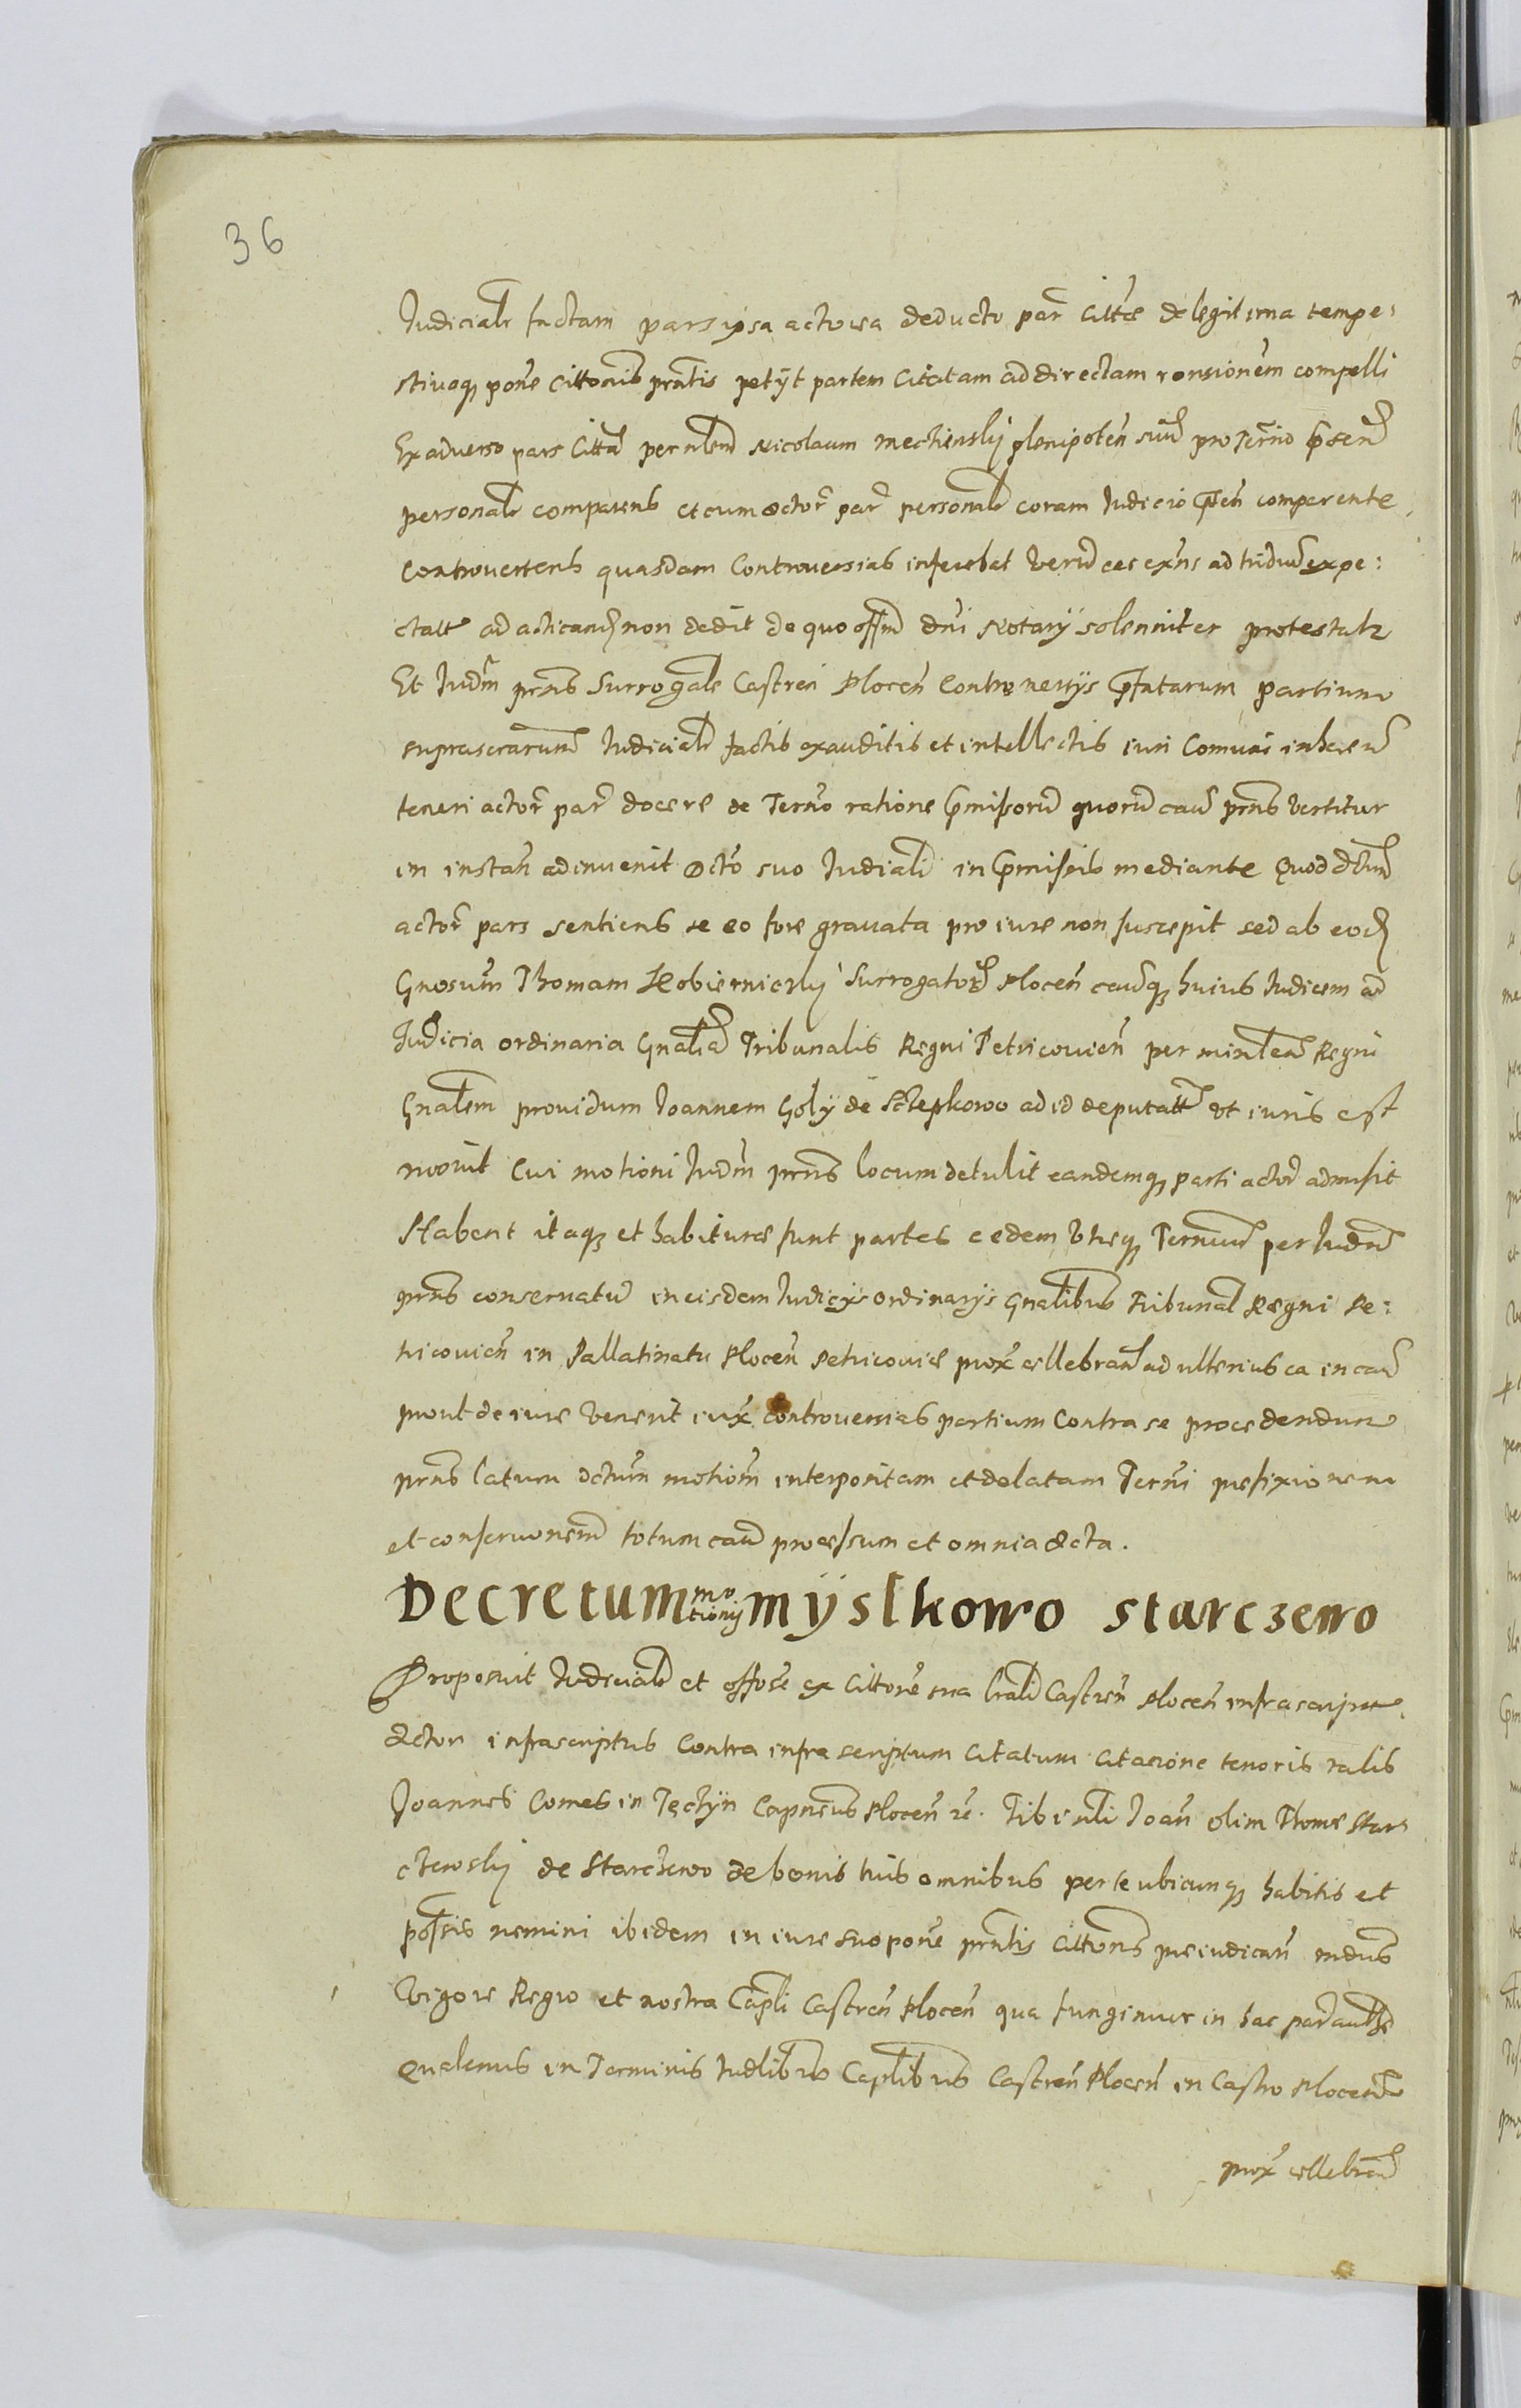 36
Judicialr factam pars ipsa actorea deducto par Cittae de legitima tempe:
stivaq pone Cittonis prntis petijt partem Citatam ad directam ronsionem compelli
Ex adverso pars Citta per nlem Nicolaum mecÿenskÿ plenipoten suu pro Termino
personalr comparens et cum actor par personalr coram Judicio comparente
Controvertens quasdam Controversias inferebat veru eas exns ad triduu expe:
ctatt ad acticand non dedit de quo offm dni Notarÿ solenniter protestatr
Et Judm prns Surrogale Castren Plocen Controversÿs partium
Judicialr factis exauditis et intellectis iuri Comuni inheren
teneri actor par docere de Termo ratione pmissoru quoru cau prns vertitur
in instan adinvenit dcto suo Judiali in pmissis mediante Quod dctum
actor pars sentiens se eo fore gravata pro iure non suscepit sed ab eod
Gnosum Thomam Kobiernickÿ Surrogator Plocen cauq huius Judicem ad
Judicia ordinaria Gnalia Tribunalis Regni Petricovien per minlem Regni
Gnalem providum Joannem Golÿ de Sczepkowo ad id deputatt ut iuris est
movit Cui motioni Judm prns locum detulit eandemq parti actor admisit
Habent itaq et habiturae sunt partes eedem utreq Termum per Judm
prns conservatu in eisdem Judicÿs ordinarÿs Gnalibus Tribunal Regni Pe:
tricovien in Pallatinatu Plocen Petricoviae prox cellebran ad ulterius ea in cau
prout de iure venerit iux controversias partium Contra se procedendum
prns latum dctum motiom interpositam et delatam Termi prefixionem
et conservonem totum cau processum et omnia acta.
Decretum motionis mÿslkowo starczewo
Proposuit Judicialr et offose ex Cittone sua lrali Castren Plocen infrascript
Actor infrascriptus Contra infra scriptum Citatum Citatione tenoris talis
Joannes Comes in Tęczÿn Capneus Plocen re. Tibi nli Joan olim Thomae Star
czewskÿ de Starczewo de bonis tuis omnibus per te ubicunq habitis et
possis nemini ibidem in iure suo pone prntis Cittonis preiudican mdus
Vigore Regio et nostra Capli Castren Plocen qua fungimur in hac par authe
Quatenus in Terminis Judlibus Caplibus Castren Plocen in Castro Plocen
prox cellebran